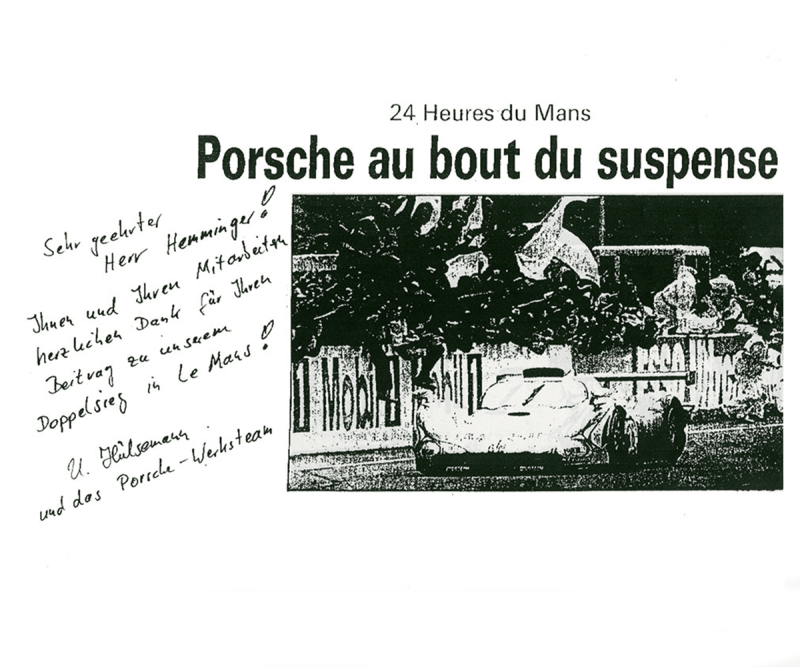 24 Heures du Mans
Porsche au bout du suspense
Sehr geehrter
Herr Hemminger!
Ihnen und Ihren Mitarbeitern
herzlichen Dank für Ihren
Beitrag zu unserem
Doppelsieg in Le Mans!
U. Hülsemann
und das Porsche-Werksteam
Mobil
Mobil
1